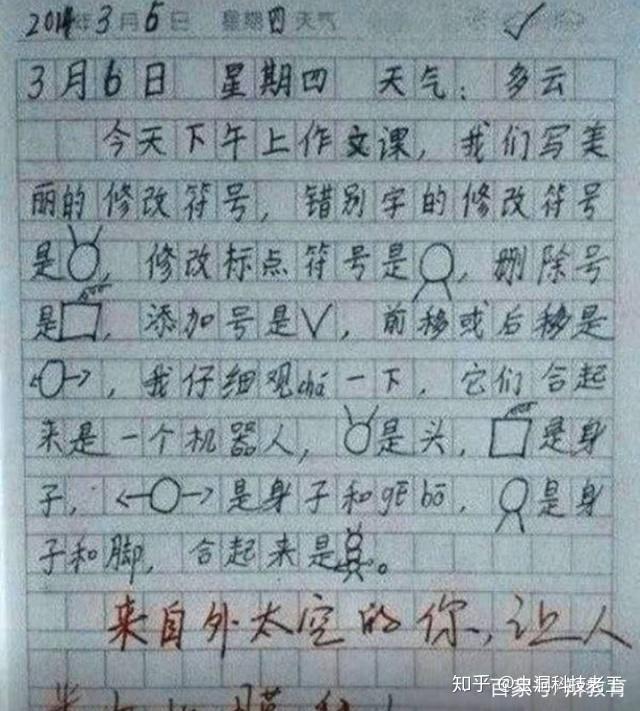 2014年3月6日 星期四天气
3月6日 星期四 天气:多云
今天下午上作文课,我们写美
丽的修改符号,错别字的修改符号
是,修改标点符号是,删除号
是,添加号是√,前移或后移是
,我仔细观chá一下,它们合起
来是一个机器人,是头,是身
子,是身子和gē bō,是身
子和脚,合起来是。
来自外太空的你,让人
知乎 @虫洞科技老王